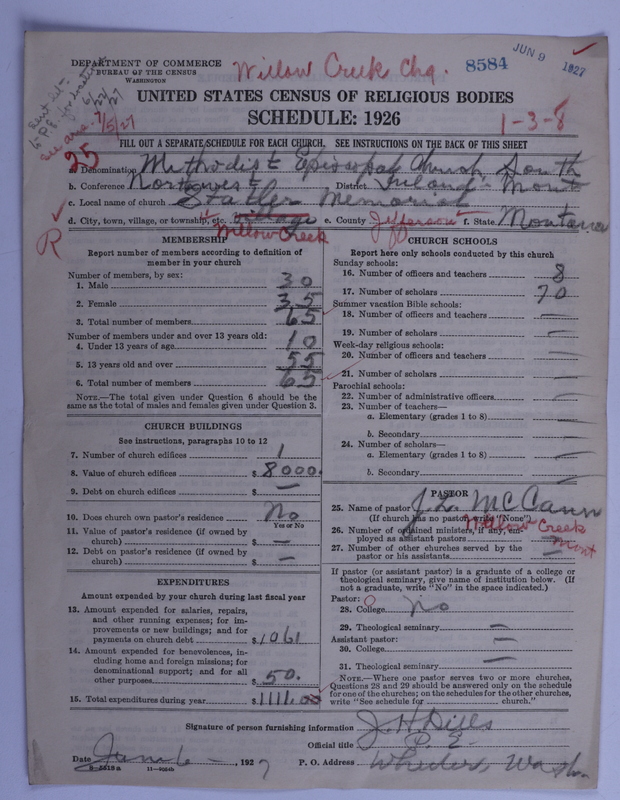 DEPARTMENT OF COMMERCE
BUREAU OF THE CENSUS
WASHINGTON
Willow Creek Chg.
8584
JUN 9 1927
UNITED STATES CENSUS OF RELIGIOUS BODIES
SCHEDULE: 1926
1-3-8
6/22/27
7/5/27
FILL OUT A SEPARATE SCHEDULE FOR EACH CHURCH. SEE INSTRUCTIONS ON THE BACK OF THIS SHEET
25
a. Denomination Methodist Episcopal Church, South
b. Conference Northwest District Inland-Mont
c. Local name of church Statler Memorial
d. City, town, village, or township, etc. Willow Creek e. County Jefferson f. State Montana
R
MEMBERSHIP
Report number of members according to definition of
member in your church
Number of members, by sex:
1. Male 30
2. Female 35
3. Total number of members 65
Number of members under and over 13 years old:
4. Under 13 years of age 10
5. 13 years old and over 55
6. Total number of members 65
NOTE.—The total given under Question 6 should be the
same as the total of males and females given under Question 3.
CHURCH BUILDINGS
See instructions, paragraphs 10 to 12
7. Number of church edifices 1
8. Value of church edifices $ 8000.
9. Debt on church edifices $ —
10. Does church own pastor's residence No
Yes or No
11. Value of pastor's residence (if owned by
church) $ —
12. Debt on pastor's residence (if owned by
church) $ —
EXPENDITURES
Amount expended by your church during last fiscal year
13. Amount expended for salaries, repairs,
and other running expenses; for im-
provements or new buildings; and for
payments on church debt $ 1061
14. Amount expended for benevolences, in-
cluding home and foreign missions; for
denominational support; and for all
other purposes $ 50.
15. Total expenditures during year $ 1111.00
CHURCH SCHOOLS
Report here only schools conducted by this church
Sunday schools:
16. Number of officers and teachers 8
17. Number of scholars 70
Summer vacation Bible schools:
18. Number of officers and teachers —
19. Number of scholars —
Week-day religious schools:
20. Number of officers and teachers —
21. Number of scholars —
Parochial schools:
22. Number of administrative officers —
23. Number of teachers—
a. Elementary (grades 1 to 8) —
b. Secondary —
24. Number of scholars—
a. Elementary (grades 1 to 8) —
b. Secondary —
PASTOR
25. Name of pastor J. L. McCann
(If church has no pastor, write "None")
Willow Creek
Mont
26. Number of ordained ministers, if any, em-
ployed as assistant pastors —
27. Number of other churches served by the
pastor or his assistants —
If pastor (or assistant pastor) is a graduate of a college or
theological seminary, give name of institution below. (If
not a graduate, write "No" in the space indicated.)
Pastor:
28. College No
29. Theological seminary —
Assistant pastor:
30. College —
31. Theological seminary —
NOTE.—Where one pastor serves two or more churches,
Questions 28 and 29 should be answered only on the schedule
for one of the churches; on the schedules for the other churches,
write "See schedule for church."
Signature of person furnishing information J. H. Dills
Official title P. E.
Date June 6 —, 1927 P. O. Address Wheeler, Wash.
8-5518a 11-9664b